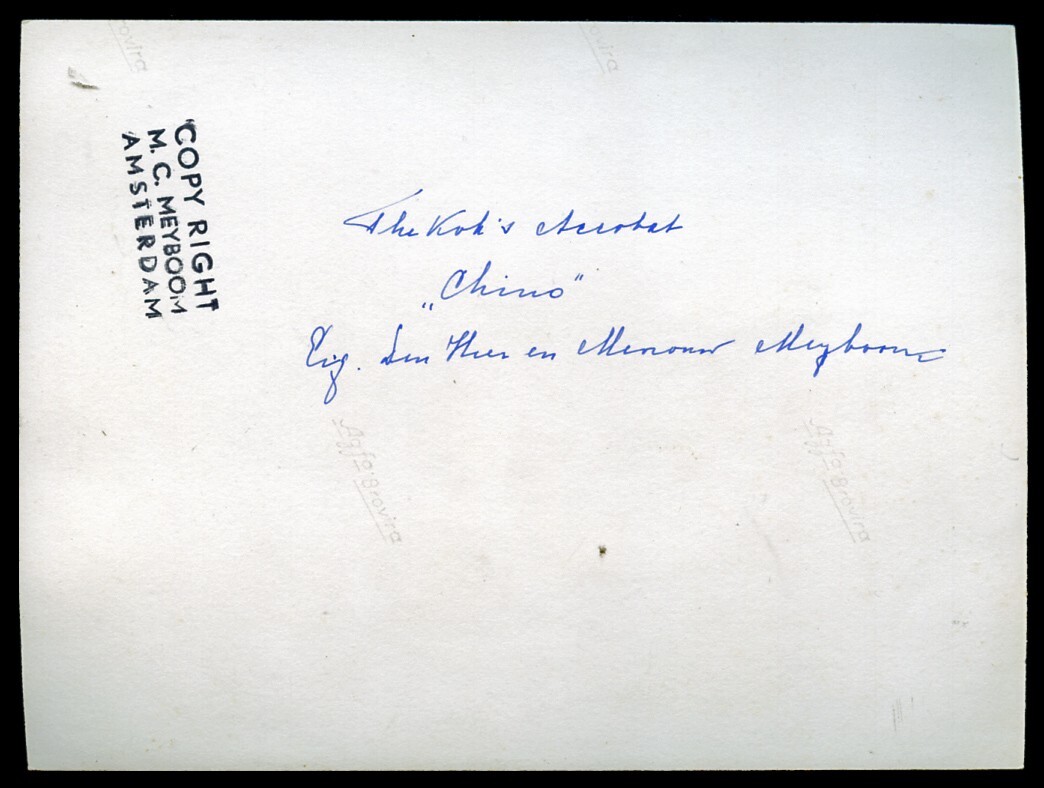 COPY RIGHT
M. C. MEYBOOM
AMSTERDAM
The Kok's Acrobat
„Chino"
Eig. Den Heer en Mevrouw Meyboom
Agfa Brovira
Agfa Brovira
rovira
rovira